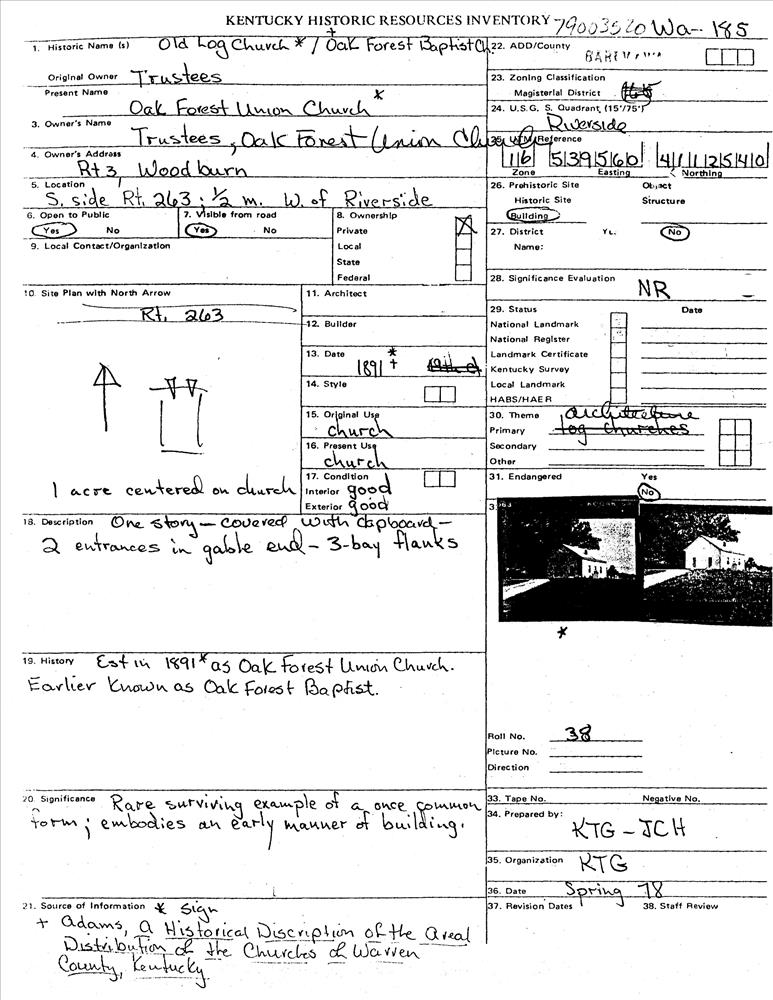 KENTUCKY HISTORIC RESOURCES INVENTORY 79003520 Wa-185
1. Historic Name (s) Old Log Church * / Oak Forest Baptist Ch +
Original Owner Trustees
Present Name
Oak Forest Union Church *
3. Owner's Name
Trustees, Oak Forest Union Church
4. Owner's Address
Rt 3, Woodburn
5. Location
S. side Rt. 263; 1/2 m. W. of Riverside
6. Open to Public
Yes No
7. Visible from road
Yes No
8. Ownership
Private X
Local
State
Federal
9. Local Contact/Organization
10. Site Plan with North Arrow
Rt. 263
1 acre centered on church
11. Architect
12. Builder
13. Date
1891 * +
14. Style
15. Original Use
church
16. Present Use
church
17. Condition
Interior good
Exterior good
18. Description One story - covered with clapboard -
2 entrances in gable end - 3-bay flanks
19. History Est in 1891* as Oak Forest Union Church.
Earlier Known as Oak Forest Baptist.
20. Significance Rare surviving example of a once common
form; embodies an early manner of building.
21. Source of Information * Sign
+ Adams, A Historical Discription of the Areal
Distribution of the Churches of Warren
County, Kentucky
22. ADD/County
23. Zoning Classification
Magisterial District
24. U.S.G. S. Quadrant (15'/75')
Riverside
Reference
16 539560 4112540
Zone Easting Northing
26. Prehistoric Site Object
Historic Site Structure
Building
27. District No
Name:
28. Significance Evaluation
NR
29. Status Date
National Landmark
National Register
Landmark Certificate
Kentucky Survey
Local Landmark
HABS/HAER
30. Theme architecture
Primary log churches
Secondary
Other
31. Endangered Yes
No
*
Roll No. 38
Picture No.
Direction
33. Tape No. Negative No.
34. Prepared by:
KTG - JCH
35. Organization KTG
36. Date Spring 78
37. Revision Dates 38. Staff Review